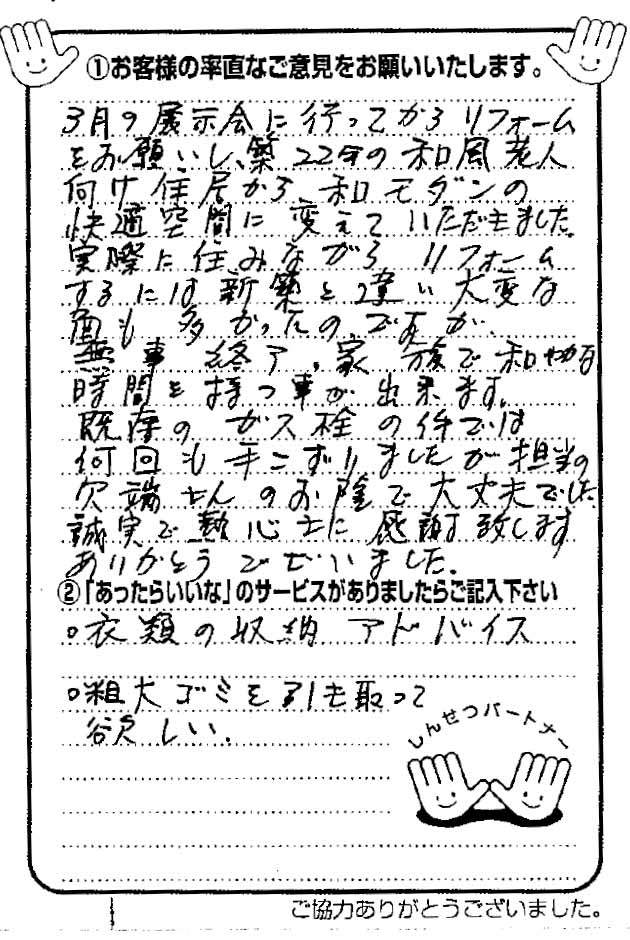 ①お客様の率直なご意見をお願いいたします。
3月の展示会に行ってからリフォーム
をお願いし、築22年の和風老人
向け住居から和モダンの
快適空間に変えていただきました。
実際に住みながらリフォーム
するには新築と違い大変な
面も多かったのですが、
無事終了、家族で和やかな
時間を持つ事が出来ます。
既存のガス栓の件では
何回も手こずりましたが担当の
さんのお陰で大丈夫でした
誠実で熱心さに感謝致します
ありがとうございました。
②「あったらいいな」のサービスがありましたらご記入下さい
○衣類の収納アドバイス
○粗大ゴミを引き取って
欲しい。
しんせつパートナー
ご協力ありがとうございました。